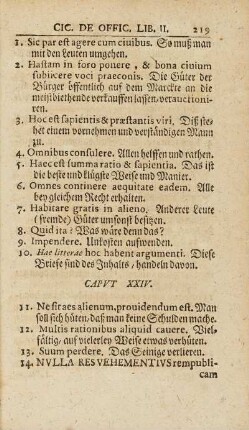 CIC. DE OFFIC. LIB. II. 219
1. Sic par est agere cum ciuibus. So muß man
mit den Leuten umgehen.
2. Hastam in foro ponere, & bona ciuium
subiicere voci praeconis. Die Güter der
Bürger öffentlich auf dem Marckte an die
meistbietende verkauffen lassen, verauctioni-
ren.
3. Hoc est sapientis & præstantis viri. Diß ste-
het einem vornehmen und verständigen Mann
zu.
4. Omnibus consulere. Allen helffen und rathen.
5. Haec est summa ratio & sapientia. Das ist
die beste und klügste Weise und Manier.
6. Omnes continere aequitate eadem. Alle
bey gleichem Recht erhalten.
7. Habitare gratis in alieno. Anderer Leute
(fremde) Güter umsonst besitzen.
8. Quid ita? Was wäre denn das?
9. Impendere. Unkosten aufwenden.
10. Hae litterae hoc habent argumenti. Diese
Briefe sind des Inhalts, handeln davon.
CAPVT XXIV.
11. Ne fit aes alienum, prouidendum est. Man
soll sich hüten, daß man keine Schulden mache.
12. Multis rationibus aliquid cauere. Viel-
fältig, auf vielerley Weise etwas verhüten.
13. Suum perdere. Das Seinige verlieren.
14. NVLLA RES VEHEMENTIVS rempubli-
cam